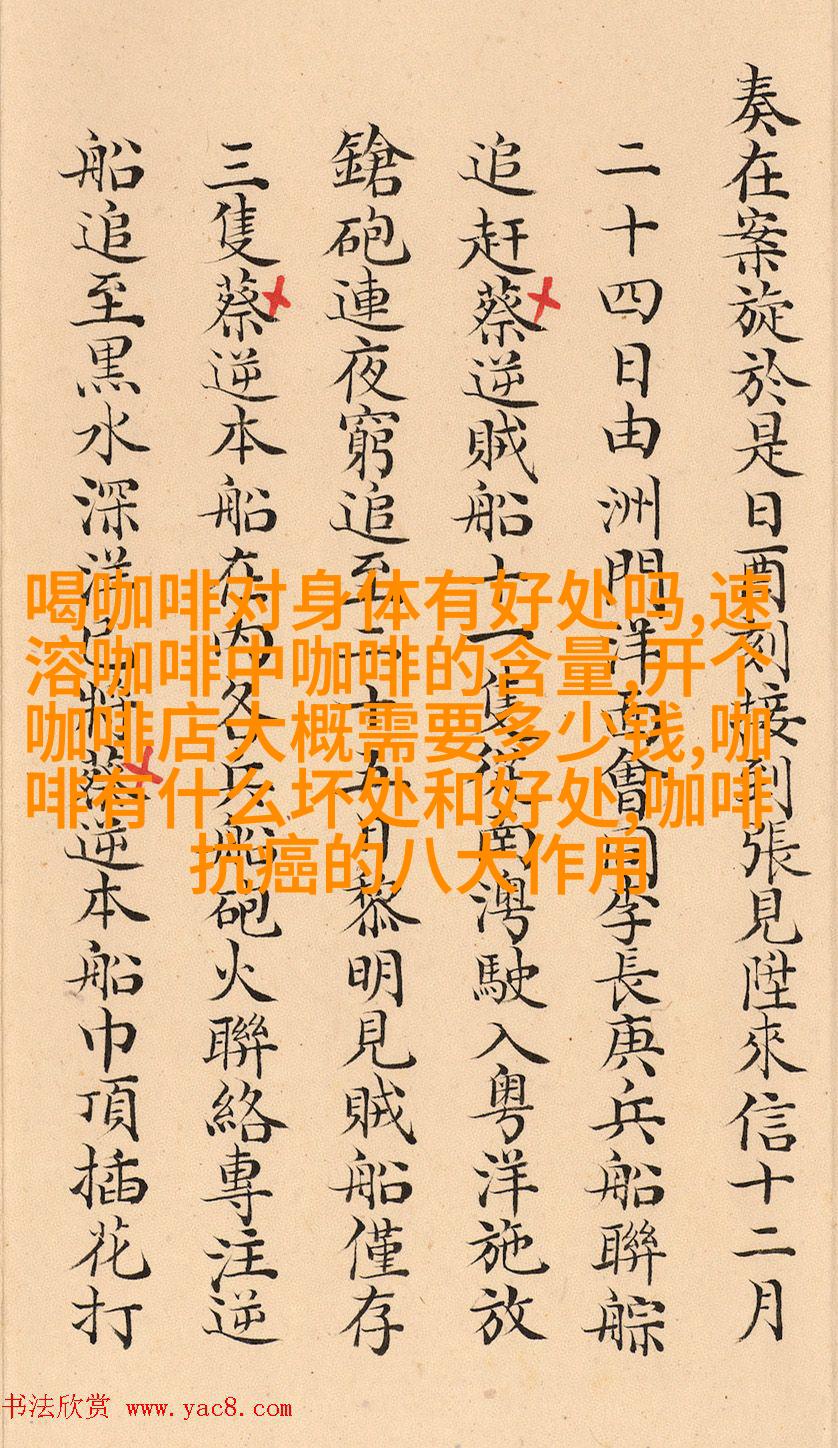 奏在案旋於是日酉刻接到張見陞來信十二月
二十四日由洲門洋面會同李長庚兵船聯䑸
追赶蔡逆賊船十一隻從南澳駛入粤洋施放
鎗砲連夜窮追至二十五日黎明見賊船僅存
三隻蔡逆本船在內各兵船砲火聯絡專注逆
船追至黒水深洋已將蔡逆本船巾頂插花打
喝咖啡对身体有好处吗,速
溶咖啡中咖啡的含量,开个
咖啡店大概需要多少钱,咖
啡有什么坏处和好处,咖啡
抗癌的八大作用
书法欣赏 www.yac8.com